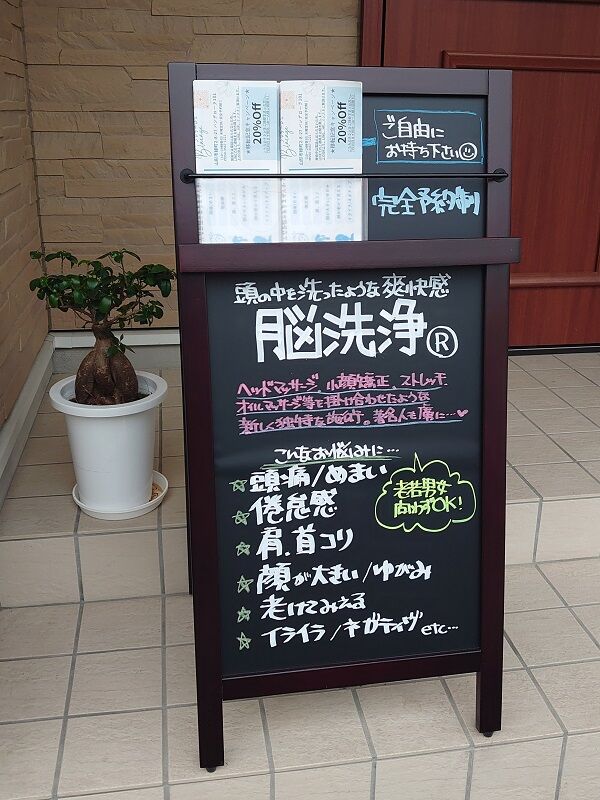 ★移転記念キャンペーン★
20%Off
★移転記念キャンペーン★
20%Off
ご自由に
お持ち下さい
完全予約制
頭の中を洗ったような爽快感
脳洗浄®
ヘッドマッサージ、小顔矯正、ストレッチ
オイルマッサージ等を掛け合わせたような
新しく独特な施術。著名人も虜に…♥
こんなお悩みに…
☆頭痛/めまい
☆倦怠感
☆肩、首コリ
☆顔が大きい/ゆがみ
☆老けてみえる
☆イライラ/ネガティヴ etc…
老若男女
問わずOK!